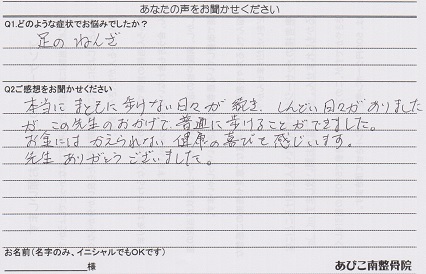 あなたの声をお聞かせください
Q1.どのような症状でお悩みでしたか?
足の ねんざ
Q2ご感想をお聞かせください
本当に まともに 歩けない日々が 続き、しんどい日々がありました
が、この先生のおかげで、普通に歩けることができました。
お金には かえられない 健康の喜びを感じいます。
先生 ありがとうございました。
お名前(名字のみ、イニシャルでもOKです)
様
あびこ南整骨院